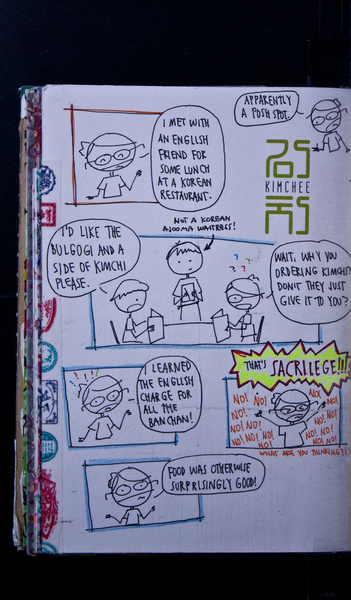 I MET WITH
AN ENGLISH
FRIEND FOR
SOME LUNCH
AT A KOREAN
RESTAURANT.
APPARENTLY
A POSH SPOT.
KIMCHEE
NOT A KOREAN
AJOOMA WAITRESS!
I'D LIKE THE
BULGOGI AND A
SIDE OF KIMCHI
PLEASE.
? ? ?
WAIT, WHY YOU
ORDERING KIMCHI?
DON'T THEY JUST
GIVE IT TO YOU?
I LEARNED
THE ENGLISH
CHARGE FOR
ALL THE
BANCHAN!
THAT'S SACRILEGE!!!
NO! NO! NO! NO!
NO! NO!
NO! NO!
NO! NO! NO! NO!
NO! NO! NO! NO! NO!
WHAT ARE YOU THINKING?!
FOOD WAS OTHERWISE
SURPRISINGLY GOOD!